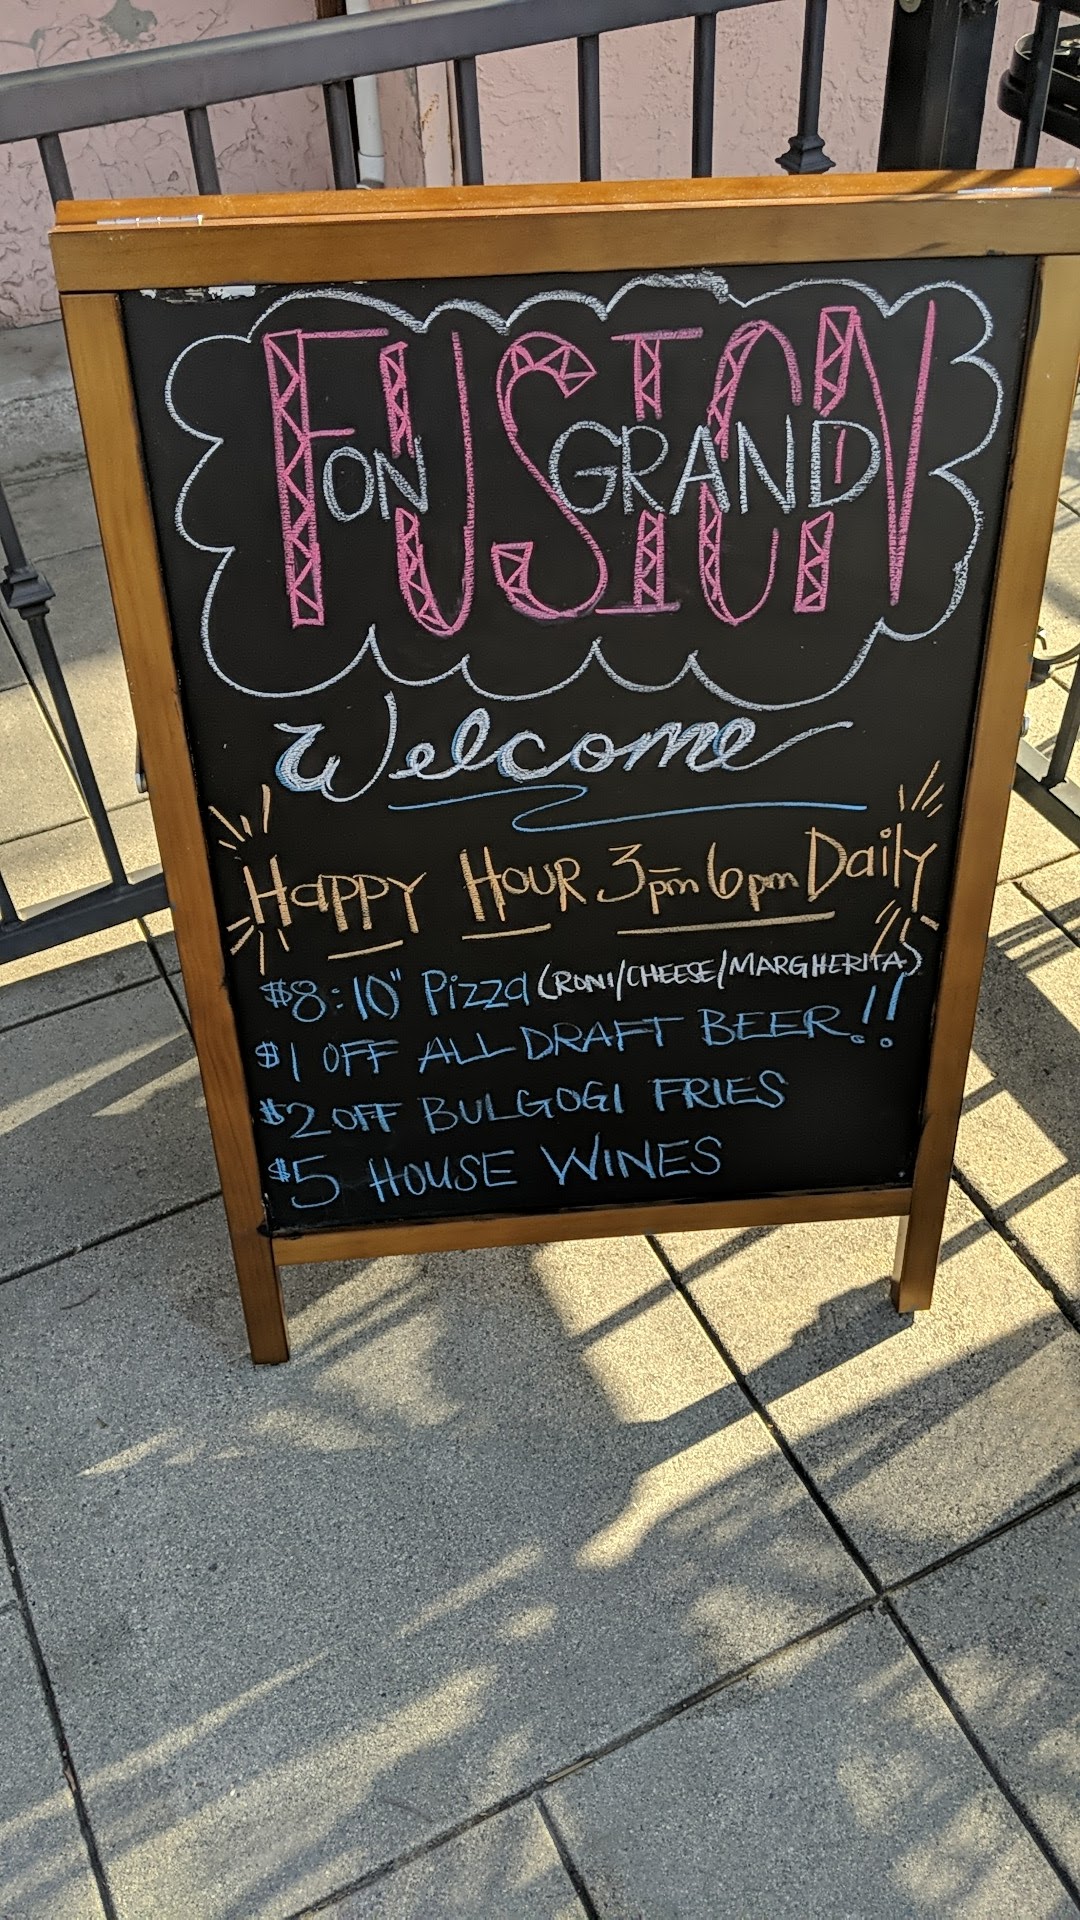 FUSION
ON GRAND
Welcome
Happy Hour 3pm 6pm Daily
$8:10" Pizza (RONI/CHEESE/MARGHERITA)
$1 OFF ALL DRAFT BEER!!
$2 OFF BULGOGI FRIES
$5 HOUSE WINES